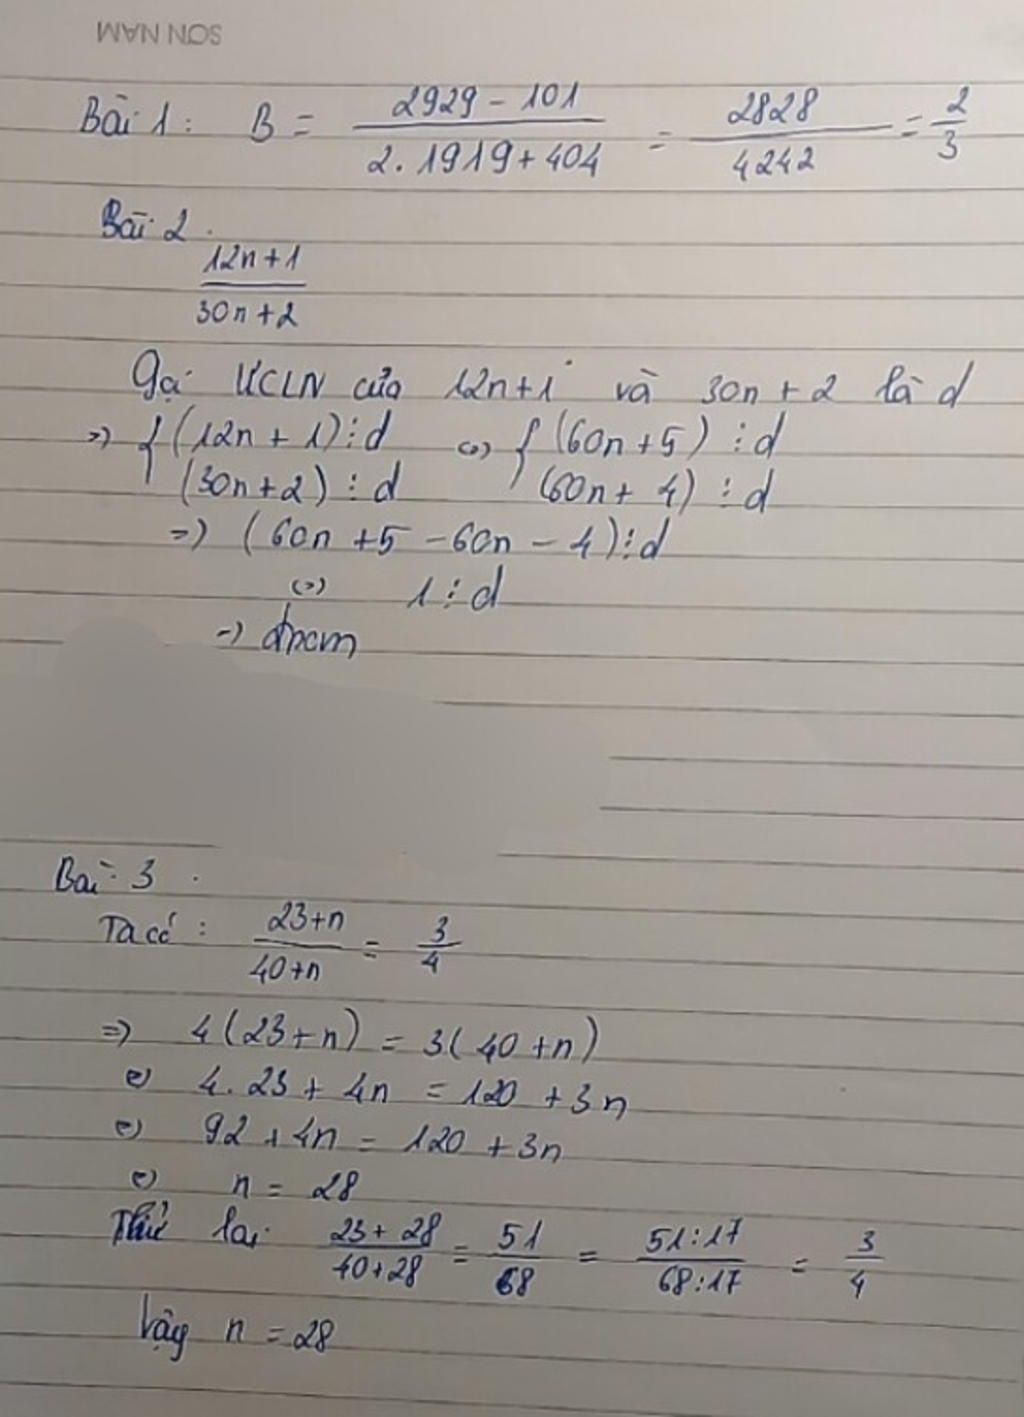 SƠN NAM
Bài 1: B = \frac{2929 - 101}{2.1919 + 404} = \frac{2828}{4242} = \frac{2}{3}
Bài 2.
\frac{12n+1}{30n+2}
Gọi ƯCLN của 12n+1 và 30n+2 là d
=> { (12n+1)⋮d <=> { (60n+5) ⋮ d
(30n+2) ⋮ d (60n+ 4) ⋮ d
=> (60n +5 -60n - 4)⋮d
<=> 1⋮d
-> đpcm
Bài 3.
Ta có: \frac{23+n}{40+n} = \frac{3}{4}
=> 4(23+n) = 3(40+n)
<=> 4.23 + 4n = 120 + 3n
<=> 92 + 4n = 120 + 3n
<=> n = 28
Thử lại \frac{23+28}{40+28} = \frac{51}{68} = \frac{51:17}{68:17} = \frac{3}{4}
Vậy n = 28